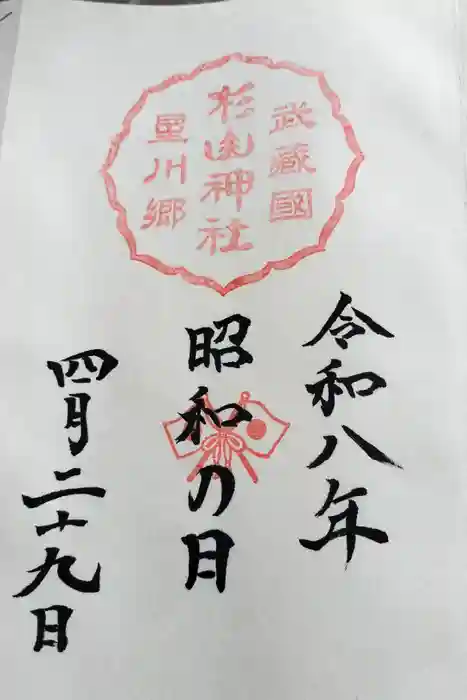 武藏國
杉山神社
星川郷
令和八年
昭和の日
四月二十九日